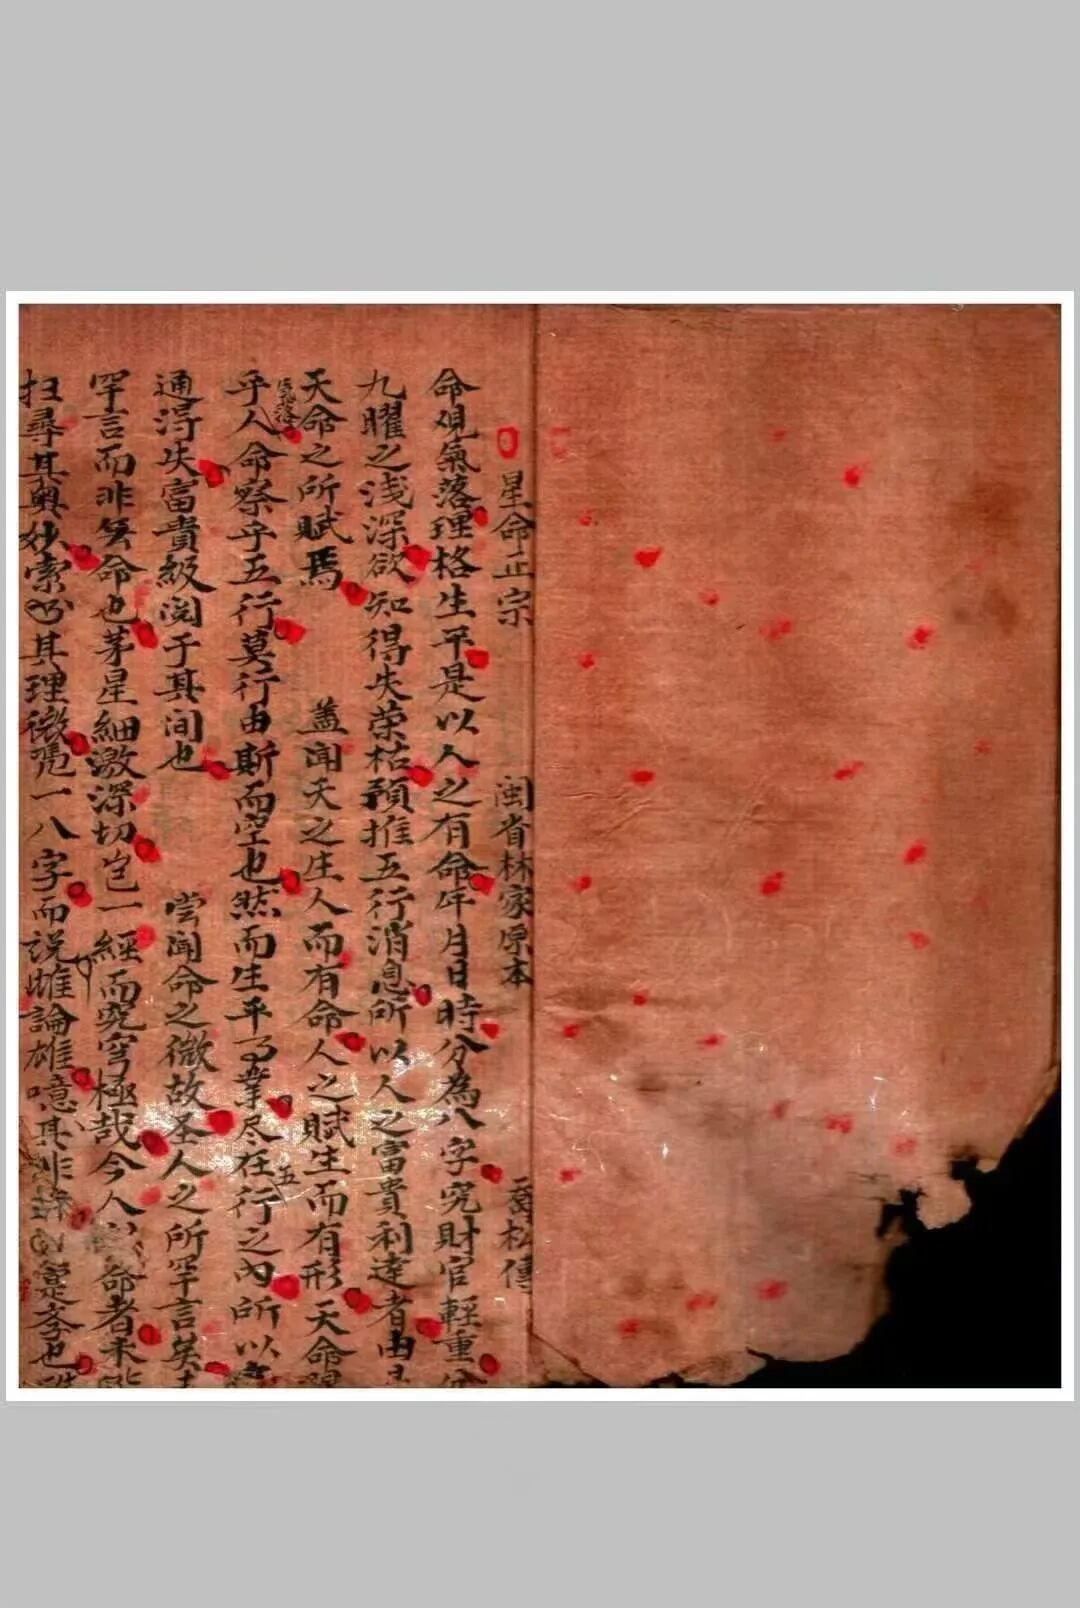 星命正宗 閩省林家原本 喬松傳
命观氣落理格生平是以人之有命年月日時分為八字究財官輕重分
九曜之浅深欲知得失荣枯預推五行消息所以人之富貴利達者由是
天命之所賦焉 蓋闻天之庄人而有命人之賦生而有形天命
乎人命察乎五行莫行由斯而空也然而生平了業尽在五行之內所以
通得失富貴級闵于其间也 尝闻命之微故圣人之所罕言矣
罕言而非無命也茅星細激深切岂一經而究穹極哉今人 命者未
扫尋其奥妙索 其理微 一八字而説雌論雄噫其非 也